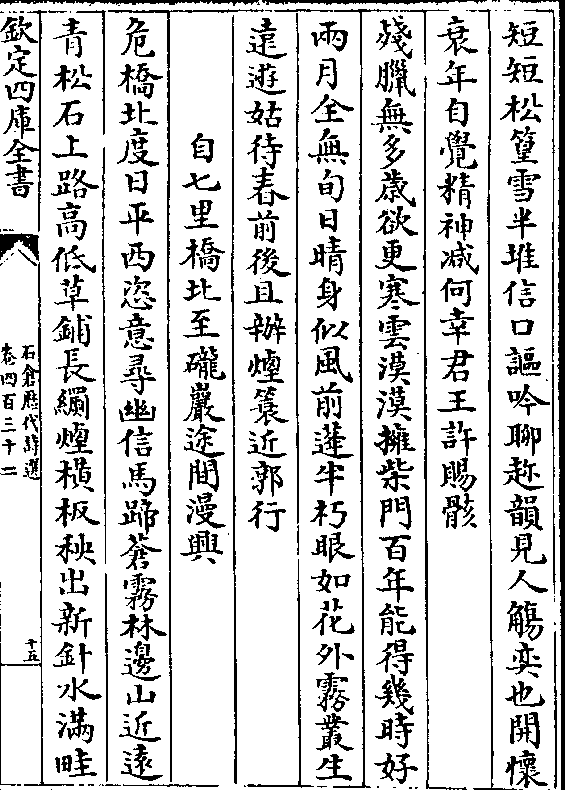 短短松篁雪半堆信口謳吟聊趂韻見人觴奕也開懷
衰年自覺精神減何幸君王許賜骸
殘臘無多歲欲更寒雲漠漠擁柴門百年能得幾時好
兩月全無旬日晴身似風前蓮半朽眼如花外霧叢生
遠遊姑待春前後且辦煙簑近郭行
自七里橋北至礲巖途間漫興
危橋北度日平西恣意尋幽信馬蹄蒼霧林邊山近遠
青松石上路高低草鋪長綱煙橫板秧出新針水滿畦
欽定四庫全書
石倉歷代詩選
卷四百三十二
十五